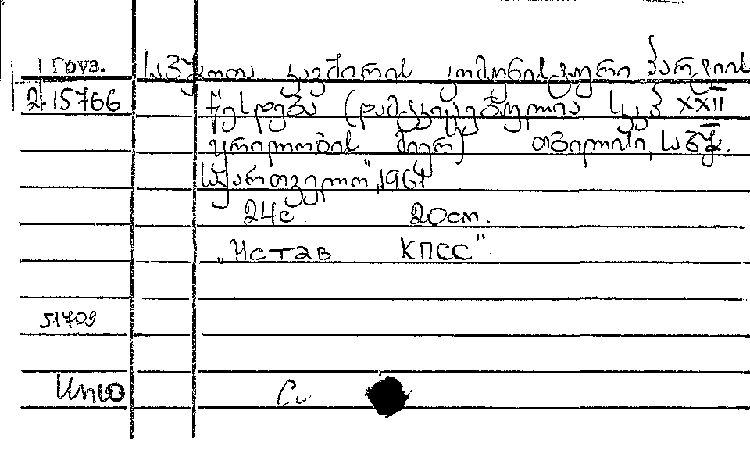 1 груз.
2-15766
საბჭოთა კავშირის კომუნისტური პარტიის
წესდება (დამტკიცებულია სკკპ XXII
ყრილობის მიერ) თბილისი, საბჭ.
საქართველო", 1961
24с. 20см.
„Устав КПСС"
51709